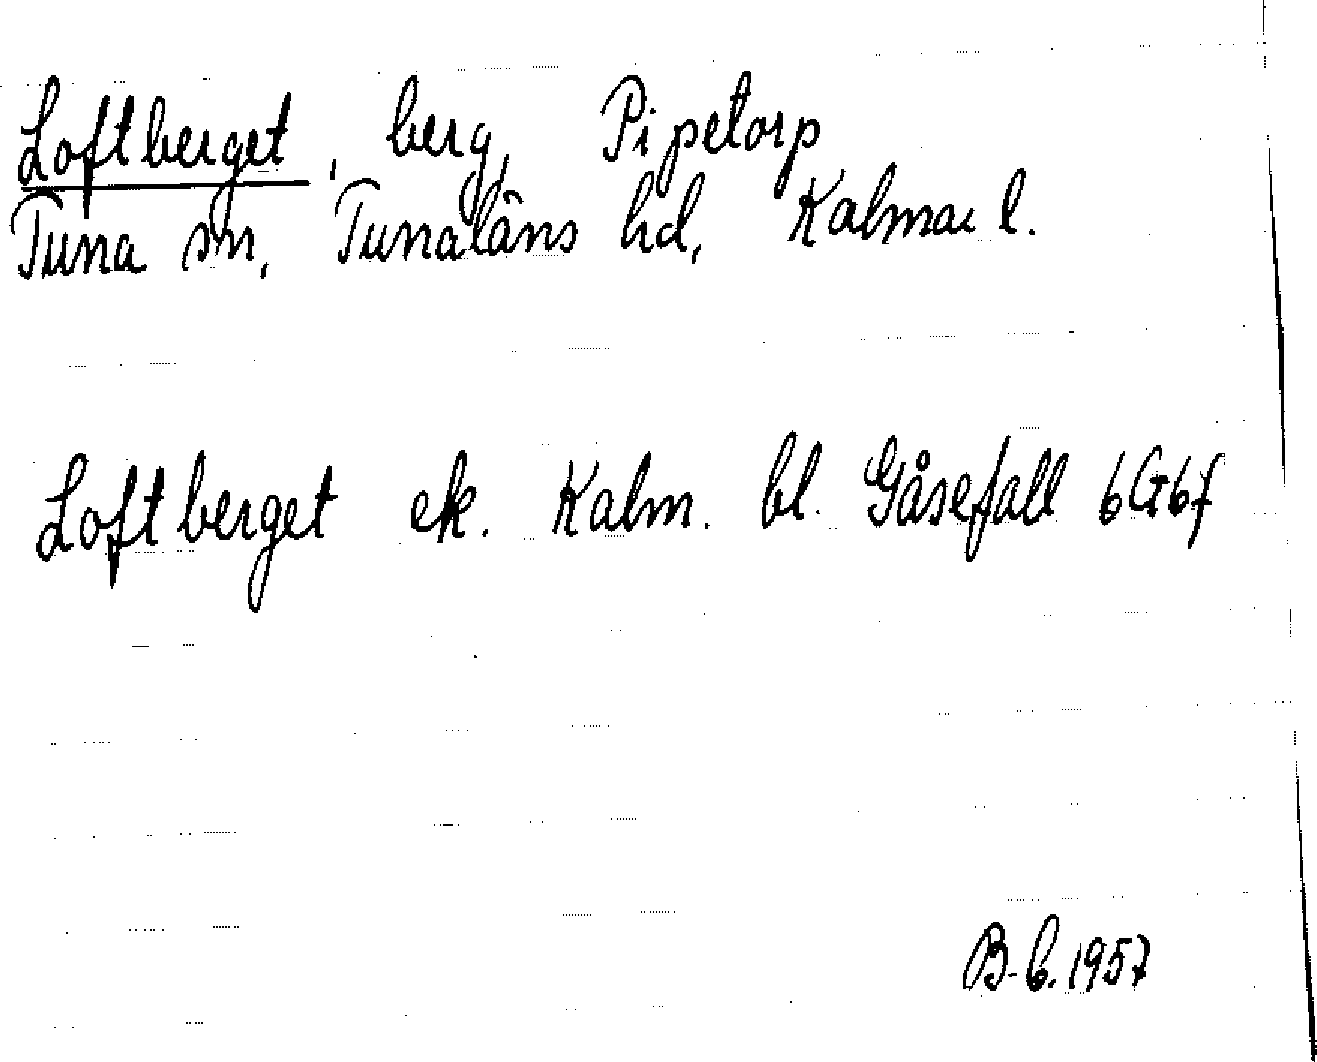 Loftberget, berg, Pipetorp
Tuna sn, Tunaläns hd, Kalmar l.
Loftberget ek. Kalm. bl. Gåsefall 6G6f
B-b. 1957